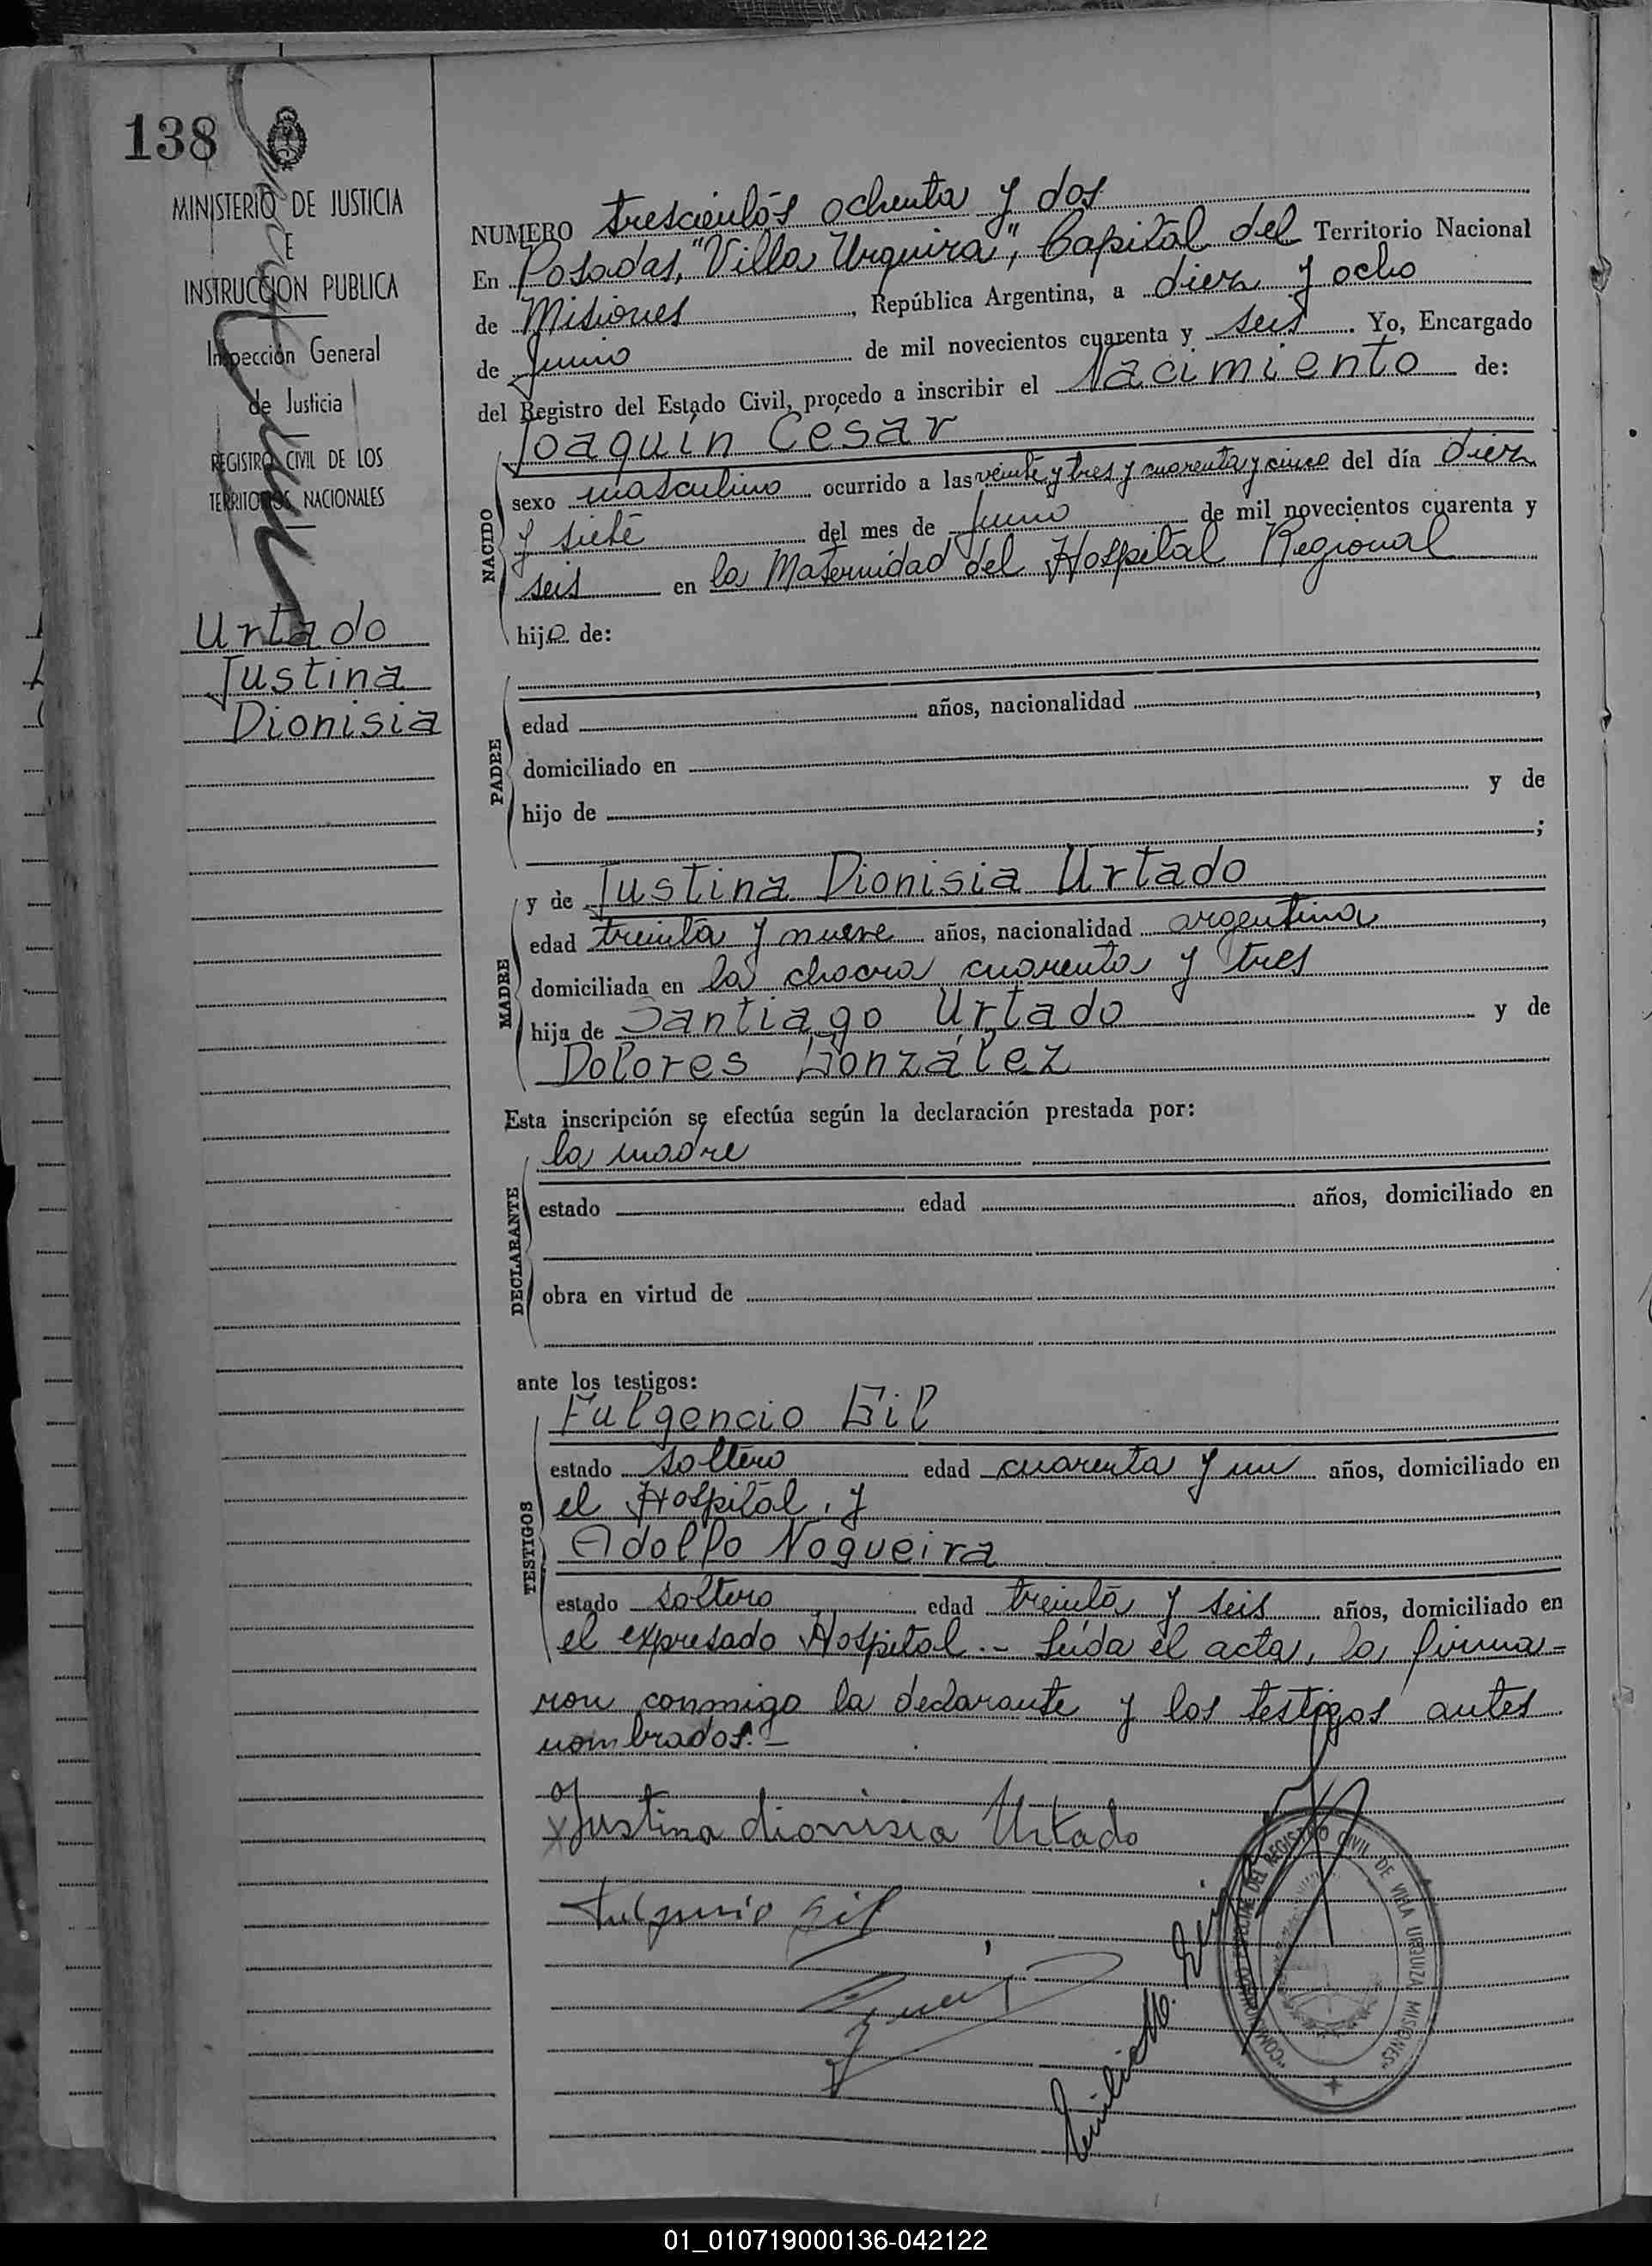 138
MINISTERIO DE JUSTICIA
E
INSTRUCCION PUBLICA
Inspección General
de Justicia
REGISTRO CIVIL DE LOS
TERRITORIOS NACIONALES
Urtado
Justina
Dionisia
NUMERO trescientos ochenta y dos
En Posadas, "Villa Urquiza", Capital del Territorio Nacional
de Misiones, República Argentina, a diez y ocho
de Junio de mil novecientos cuarenta y seis. Yo, Encargado
del Registro del Estado Civil, procedo a inscribir el Nacimiento de:
NACIDO
Joaquín César
sexo masculino ocurrido a las veinte y tres y cuarenta y cinco del día diez
y siete del mes de Junio de mil novecientos cuarenta y
seis en la Maternidad del Hospital Regional
hijo de:
PADRE
edad años, nacionalidad ,
domiciliado en
hijo de y de
;
MADRE
y de Justina Dionisia Urtado
edad treinta y nueve años, nacionalidad argentina,
domiciliada en la chacra cuarenta y tres
hija de Santiago Urtado y de
Dolores González
Esta inscripción se efectúa según la declaración prestada por:
DECLARANTE
la madre
estado edad años, domiciliado en
obra en virtud de
ante los testigos:
TESTIGOS
Fulgencio Gil
estado soltero edad cuarenta y un años, domiciliado en
el Hospital, y
Adolfo Nogueira
estado soltero edad treinta y seis años, domiciliado en
el expresado Hospital.- Leída el acta, la firma=
ron conmigo la declarante y los testigos antes
nombrados.-
x Justina dionisia Urtado
Fulgencio Gil
Emilio M.
DEL REGISTRO CIVIL DE VILLA URQUIZA MISIONES
01_010719000136-042122